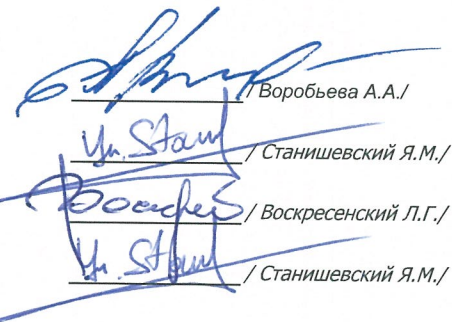 / Воробьева А.А./
Ya. Stan / Станишевский Я.М./
/ Воскресенский Л.Г./
Ya. Stan / Станишевский Я.М./